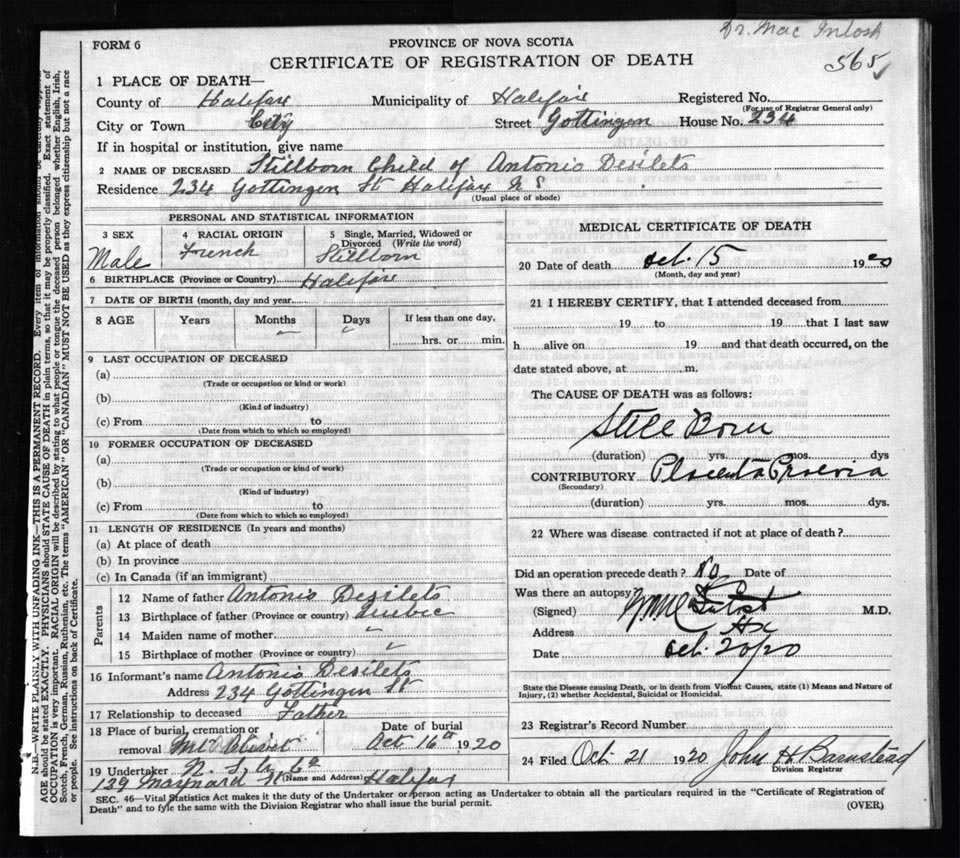 Dr. Mac Intosh
565
FORM 6
PROVINCE OF NOVA SCOTIA
CERTIFICATE OF REGISTRATION OF DEATH
1 PLACE OF DEATH—
County of Halifax Municipality of Halifax Registered No.
(For use of Registrar General only)
City or Town City Street Gottingen House No. 234
If in hospital or institution, give name
2 NAME OF DECEASED Stillborn Child of Antonio Desilets
Residence 234 Gottingen St Halifax N S
(Usual place of abode)
PERSONAL AND STATISTICAL INFORMATION
3 SEX Male
4 RACIAL ORIGIN French
5 Single, Married, Widowed or Divorced (Write the word) Stillborn
6 BIRTHPLACE (Province or Country) Halifax
7 DATE OF BIRTH (month, day and year)
8 AGE Years Months Days If less than one day,
hrs. or min.
9 LAST OCCUPATION OF DECEASED
(a)
(Trade or occupation or kind or work)
(b)
(Kind of industry)
(c) From to
(Date from which to which so employed)
10 FORMER OCCUPATION OF DECEASED
(a)
(Trade or occupation or kind of work)
(b)
(Kind of industry)
(c) From to
(Date from which to which so employed)
11 LENGTH OF RESIDENCE (In years and months)
(a) At place of death
(b) In province
(c) In Canada (if an immigrant)
Parents
12 Name of father Antonio Desilets
13 Birthplace of father (Province or country) Quebec
14 Maiden name of mother "
15 Birthplace of mother (Province or country) "
16 Informant's name Antonio Desilets
Address 234 Gottingen St
17 Relationship to deceased Father
18 Place of burial, cremation or removal Mt Olivet
Date of burial
Oct 16th 1920
19 Undertaker N. S. U. Co
(Name and Address)
139 Maynard St Halifax
MEDICAL CERTIFICATE OF DEATH
20 Date of death Oct. 15 1920
(Month, day and year)
21 I HEREBY CERTIFY, that I attended deceased from
19 to 19 that I last saw
h alive on 19 and that death occurred, on the
date stated above, at m.
The CAUSE OF DEATH was as follows:
Still Born
(duration) yrs. mos. dys
CONTRIBUTORY Placenta Praevia
(Secondary)
(duration) yrs. mos. dys.
22 Where was disease contracted if not at place of death?
Did an operation precede death? No Date of
Was there an autopsy?
(Signed) M.D.
Address Hx
Date Oct. 20/20
State the Disease causing Death, or in death from Violent Causes, state (1) Means and Nature of
Injury, (2) whether Accidental, Suicidal or Homicidal.
23 Registrar's Record Number
24 Filed Oct 21 1920 John H Barnstead
Division Registrar
SEC. 46—Vital Statistics Act makes it the duty of the Undertaker or person acting as Undertaker to obtain all the particulars required in the "Certificate of Registration of
Death" and to fyle the same with the Division Registrar who shall issue the burial permit.
(OVER)
N.B.—WRITE PLAINLY WITH UNFADING INK—THIS IS A PERMANENT RECORD. Every item of information should be carefully supplied.
AGE should be stated EXACTLY. PHYSICIANS should STATE CAUSE OF DEATH in plain terms, so that it may be properly classified. Exact statement of
OCCUPATION is very important. RACIAL ORIGIN will be described by stating to what people or tongue the deceased person belonged whether English, Irish,
Scotch, French, German, Russian, Ruthenian, etc. The terms "AMERICAN" OR "CANADIAN" MUST NOT BE USED as they express citizenship but not a race
or people. See instructions on back of Certificate.